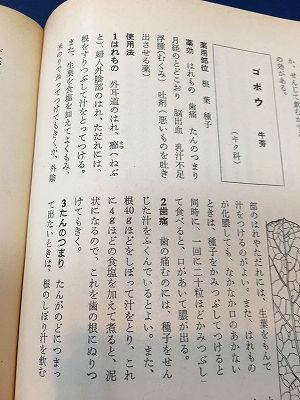 ゴボウ 牛蒡
(キク科)
薬用部位 根 葉 種子
薬効 はれもの 歯痛 たんのつまり
月経のとどこおり 脳出血 乳汁不足
浮腫(むくみ) 吐剤(悪いものを吐き
出させる薬)
使用法
1はれもの 外耳道のはれ、癤・ねぶ
と、婦人外陰部のはれ、ただれには、
根をすりつぶして汁をとってつける。
また、生葉を食塩を加えてよくもみ、
米のりでねってつけてもきくが、外陰
部のはれやただれには、生葉をもんで
汁をつけるのがよい。また、はれもの
が化膿しても、なかなか口のあかない
ときは、種子をかみつぶしてつけると
同時に、一回に二十粒ほどかみつぶし
て食べると、口があいて膿が出る。
2歯痛 歯の痛むのには、種子をせん
じた汁をふくんでいるとよい。また、
根40gほどをしぼって汁をとり、これ
に4gほどの食塩を加えて煮ると、泥
状になるので、これを歯の根にぬりつ
けてもきく。
3たんのつまり たんがのどにつまっ
て出ないときは、根のしぼり汁を飲む